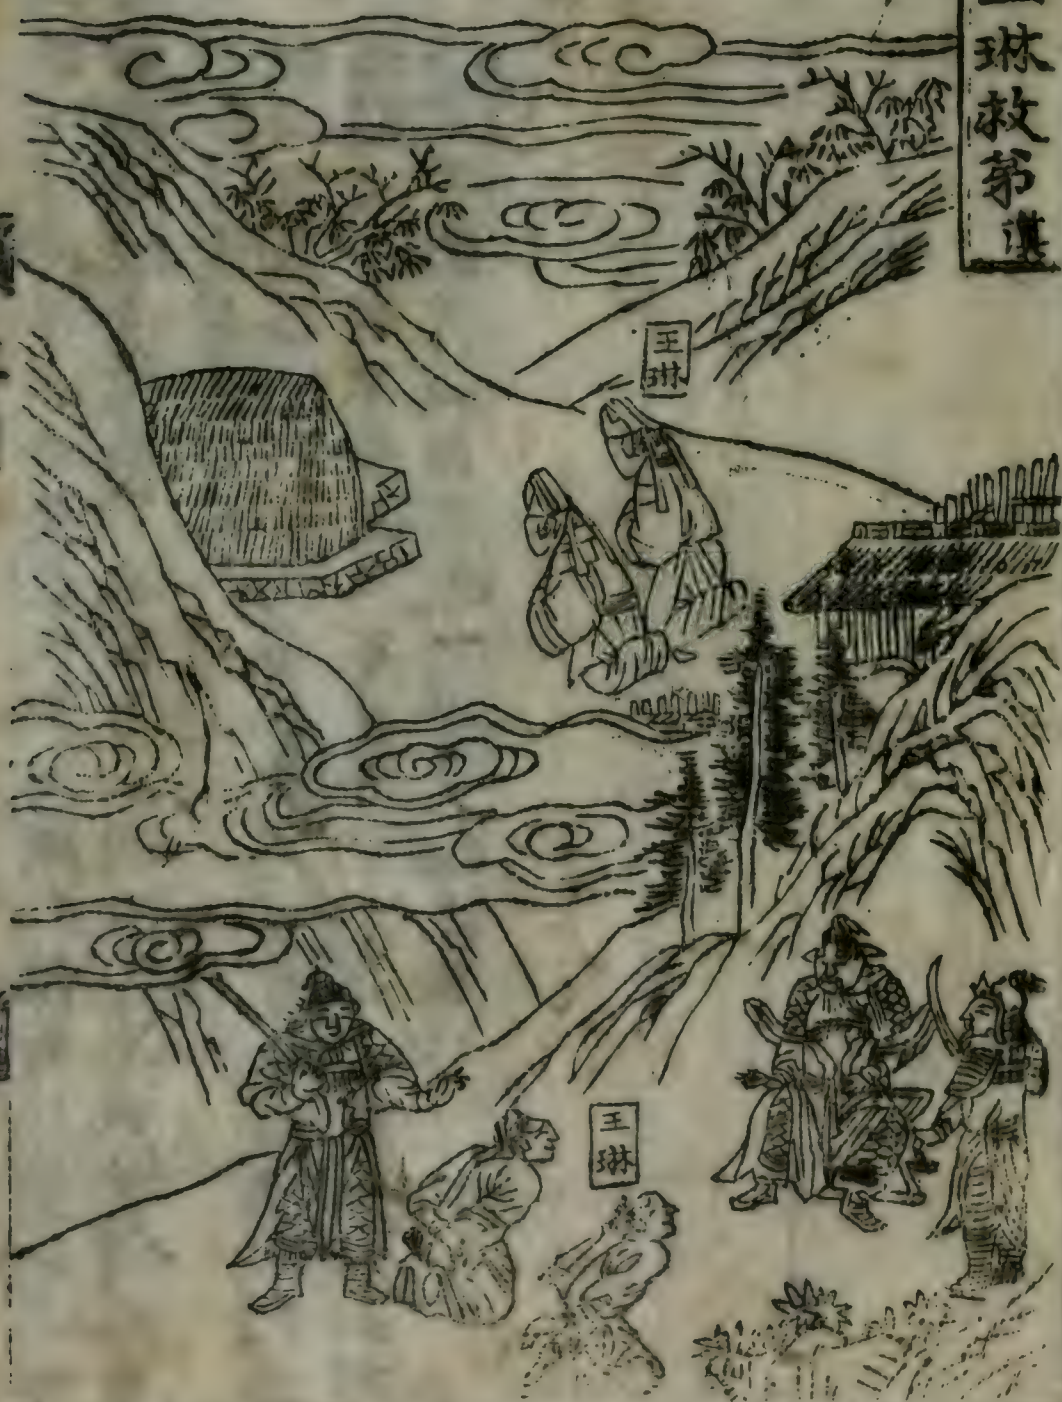 琳救弟漢
王琳
王琳